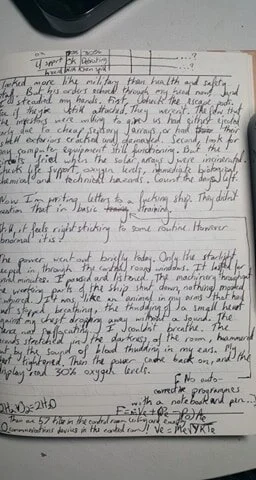 looked more like military than health and safety
staff. But his orders echoed through my head now, and
steadied my hands. First, check the escape pods.
See if they're still attached. They weren't. The few that
the inspectors were willing to give us had either ejected
early due to cheap sensory arrays or had their
exteriors cracked and damaged. Second, look for
any computer equipment still functioning. But the
circuits fried when the solar arrays were incinerated.
Check life support, oxygen levels, immediate biological,
chemical and technical hazards. Count the days left.
Now I'm writing letters to a fucking ship. They didn't
mention that in basic training.
Still, it feels right sticking to some routine. However
abnormal it is.
The power went out briefly today. Only the starlight
seeped in through the control room windows. It lasted for
several minutes. I paused and listened. The machinery throughout
the working parts of the ship shut down, nothing moved
or whirred. It was like an animal in my arms that had
just stopped breathing, the thudding of a small heart
against my chest dropping away without a sound. The
silence was suffocating. I couldn't breathe. The
seconds stretched in the darkness of the room, hammered
out by the sound of blood thudding in my ears. My
chest tightened. Then the power came back on, and the
display read 30% oxygen levels.
No auto-
correct programmes
with a notebook and pen...
2H₂ + O₂ = 2H₂O
There are 57 tiles in the control room ceiling and exactly
0 communications devices in the control room!!